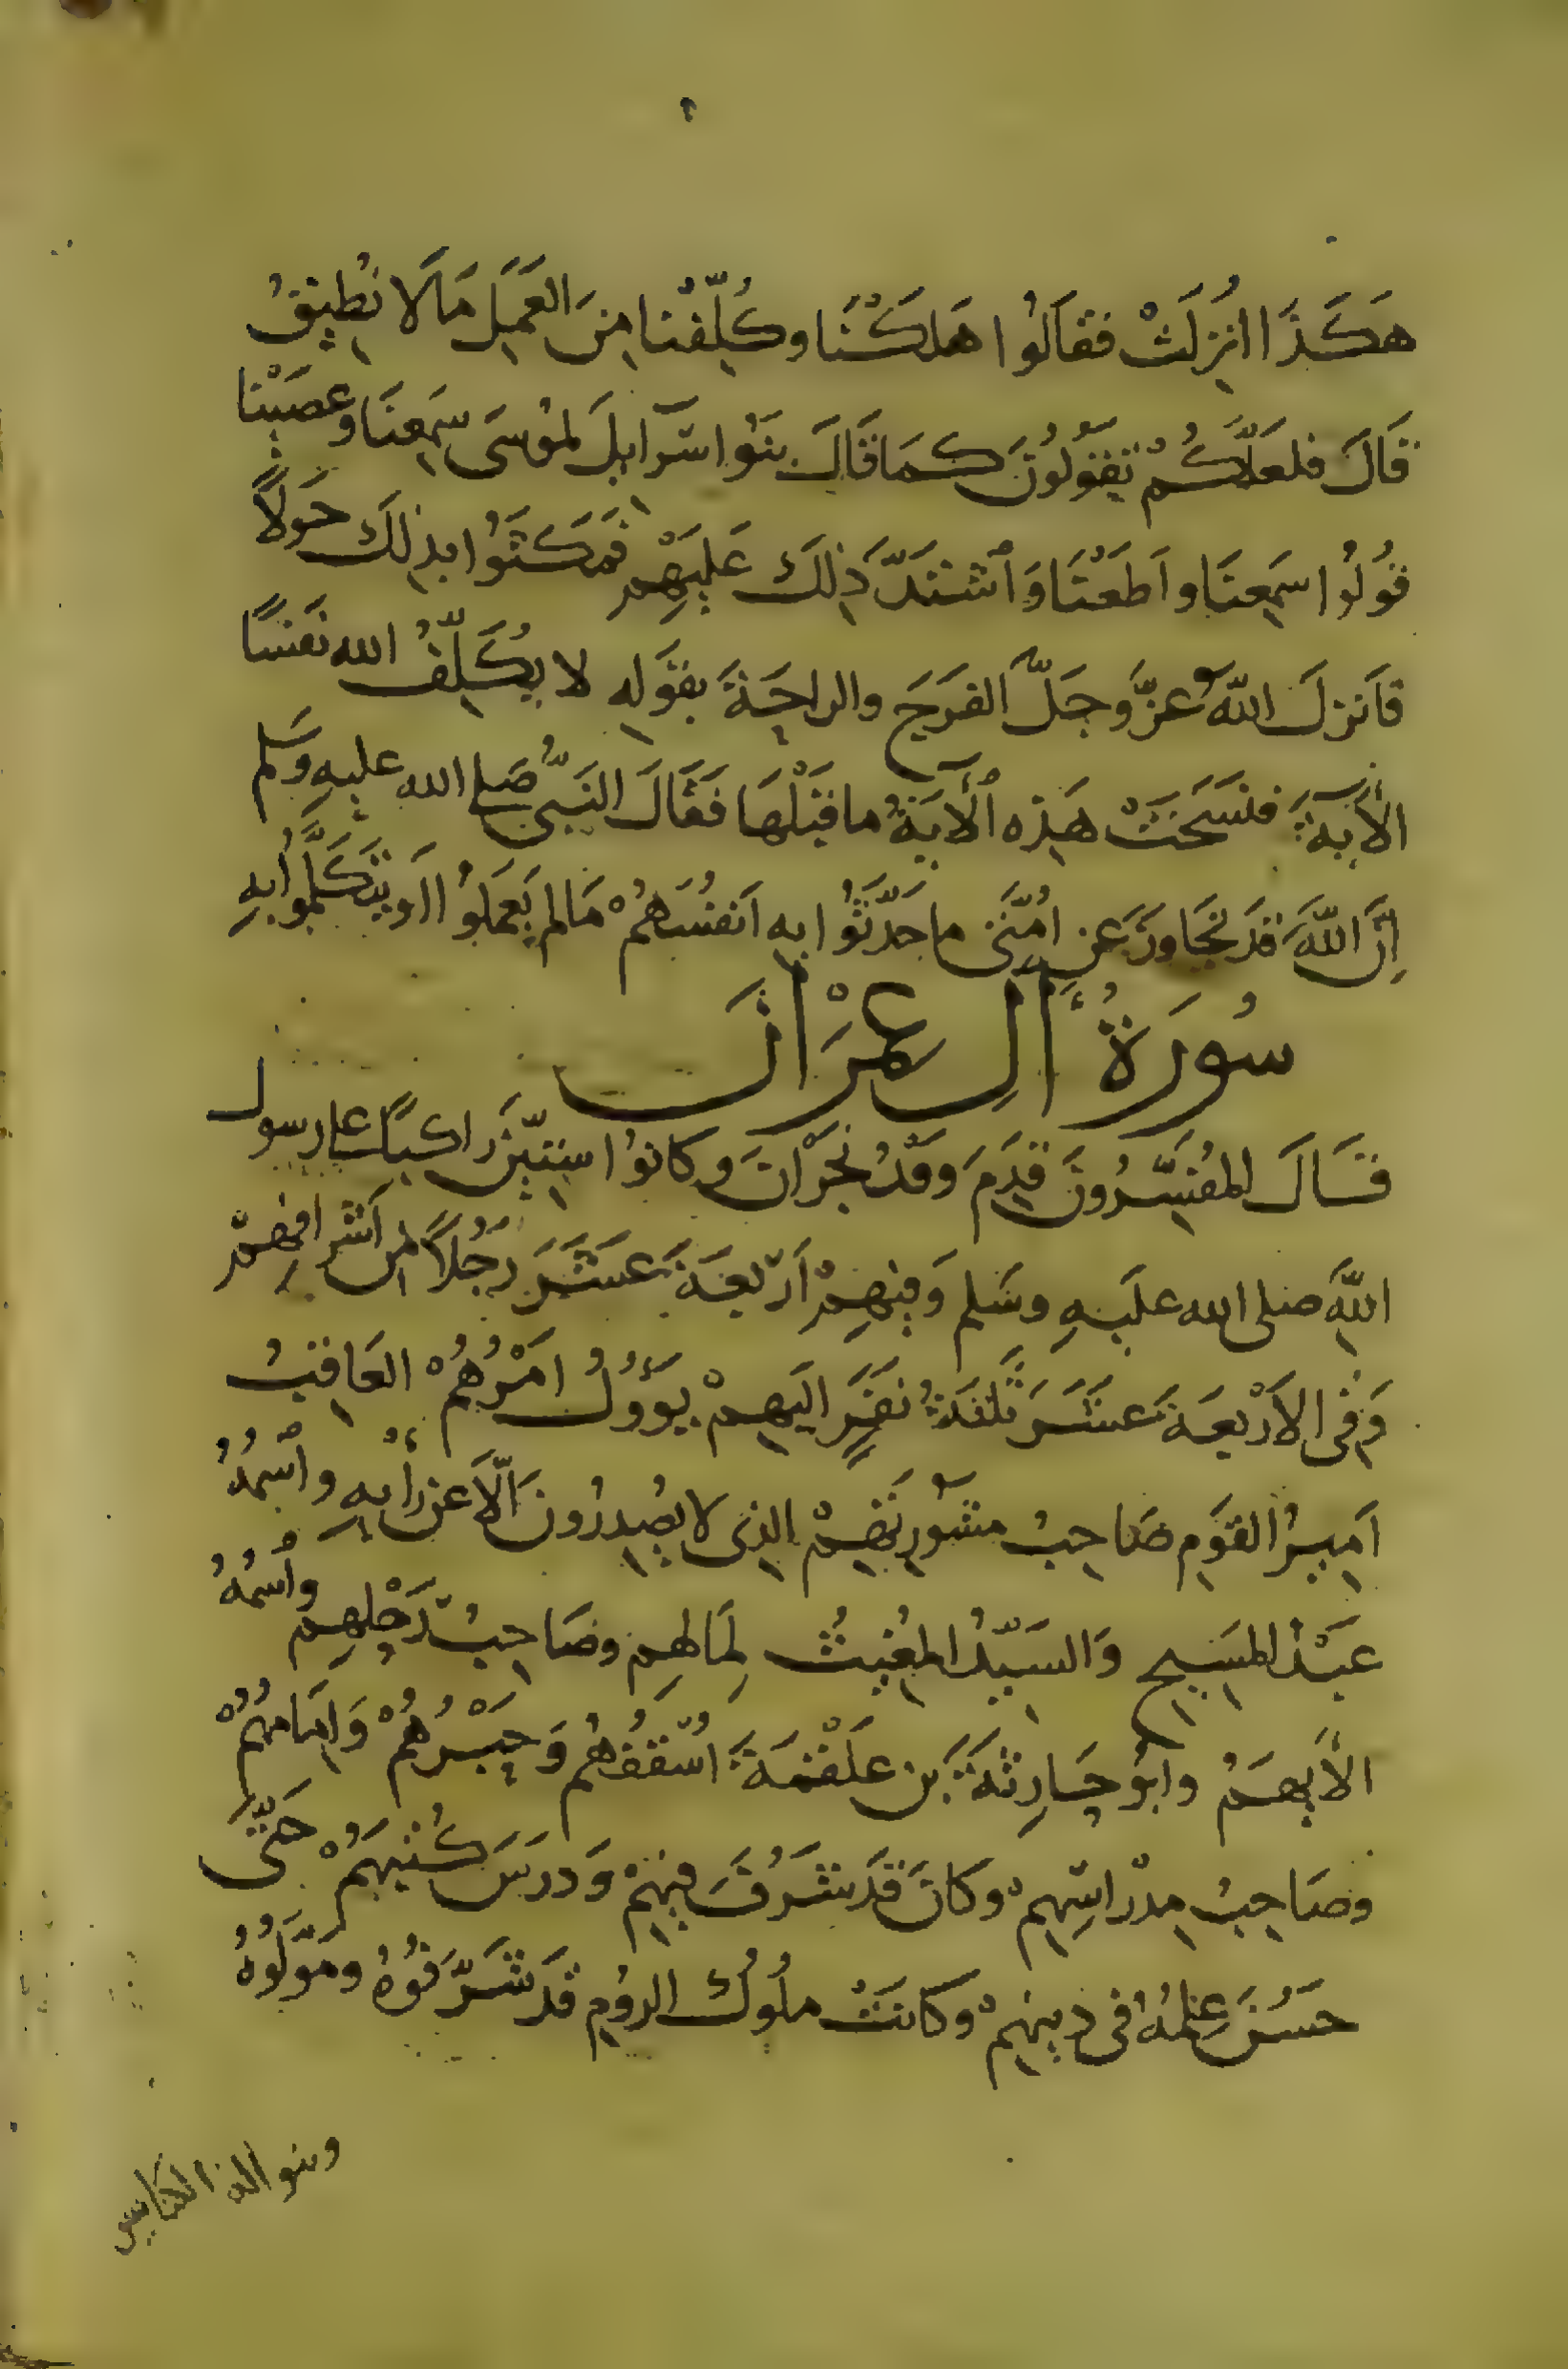 هَكَذَا انُزِلَتْ فقَالُوا هَلَكْنَا وكُلِّفْنا مِنَ العَمَلِ مَا لَا نُطِيقُ
قَالَ فلعَلَّكُمْ تَقُولُونَ كمَا قَالَ بَنُوا اسْرَآايلَ لمُوسَى سَمِعنَا وعصَيْنا
قُولُوا سَمِعنَا واَطَعْنَا وَاشْتَدَّ ذَلِكَ عَلَيْهِم فمَكَثَوُا بذلِكَ حَولًا
فاَنزلَ اللَّهُ عزَّ وَجَلَّ الفرَجَ والراحَةَ بقَولِهِ لا يُكَلِّفُ الله نَفسًا
الْآيةَ فنسَخَتْ هَذِه الْآيَةُ ما قَبْلَهَا فقَالَ النَبىُّ صَلى الله عليهِ وَسَلم
اِنَّ اللَّهَ قَد تجَاوزَ عَن اُمَّتى ما حَدَّثُوا بِهِ اَنفُسَهُمْ مَا لم يَعمَلُوا اَو يَتَكَلَّمُوا بِهِ
سُورَةُ آلِ عِمْرَانَ
قَالَ المُفسِّرُونَ قَدِمَ وَفْدُ نجْرَانَ وكانوُا سِتّينَ رَاكبًا على رسول
اللَّهِ صلى الله علَيهِ وسَلم وَفيهِمْ أَرْبعَةَ عَشَرَ رَجُلًا مِن اَشْرافِهِمْ
وَفى الاَرْبعَةَ عشَرَ ثلَثةُ نفَرٍ اِلَيهِمْ يَؤُولُ امْرُهُمْ العَاقِبُ
اَمِيرُ القَومِ صَاحِبُ مشوَرتِهِمْ الذِى لا يَصِدرُونَ اِلَّا عن رأيِهِ واسْمُهُ
عَبْدُ المسَيِحِ وَالسَيّدُ المغِيثُ لِمَالهِم وصَاحِبُ رَحْلِهِم واسْمُهُ
الأَيهَمُ وابُو حَارِثةَ بَن علْقمَةَ اسْقفُهُم وَحِبْرُهُمْ وَاِمَامهُمْ
وصَاحِبُ مِدْرَاسِهِم وكانَ قَد شَرُفَ فيهِمْ وَدرَسَ كُتبَهُمْ حَتَّى
حَسُنَ عِلمُهُ فى دِينهِمْ وكانَتْ ملُوكُ الروُمِ قَد شَرَّفوُهُ ومَوَّلُوهُ
وبنو الهُ الكنايس